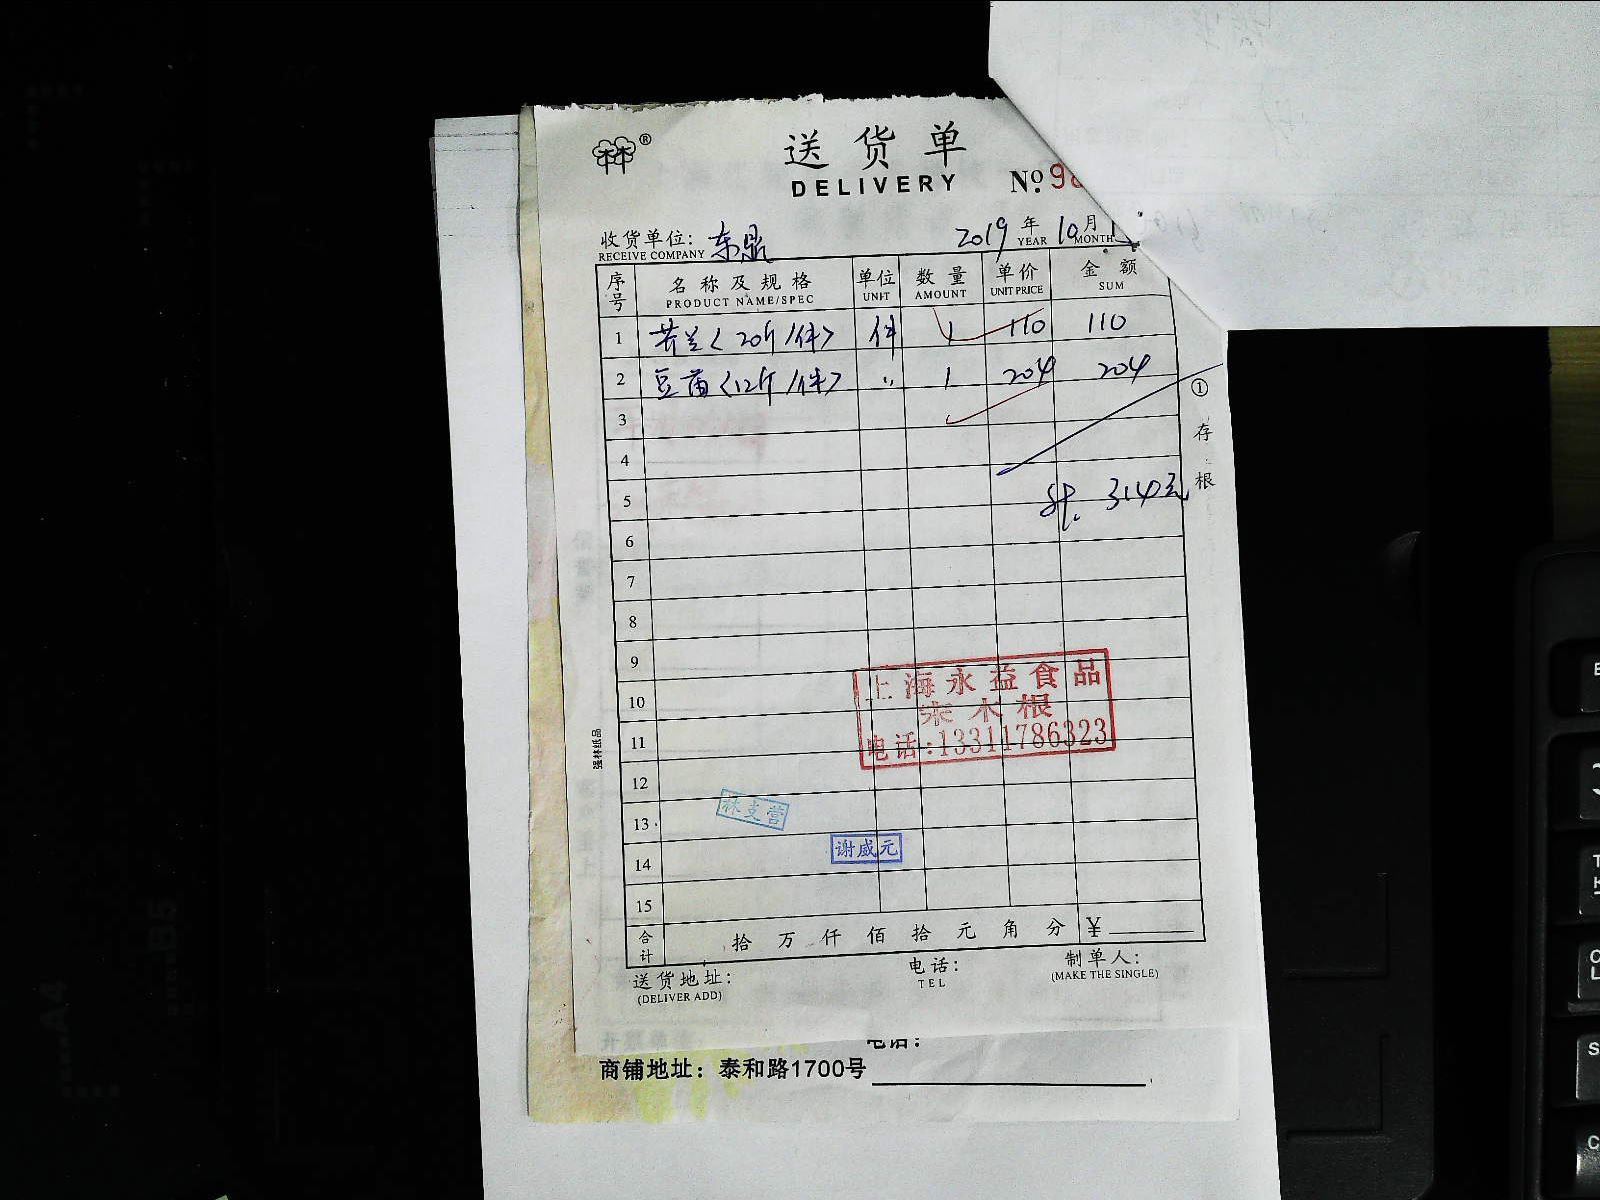 林®
送货单
DELIVERY
No. 98
收货单位: 东鼎 2019年10月
RECEIVE COMPANY YEAR MONTH
序号 名称及规格 单位 数量 单价 金额
PRODUCT NAME/SPEC UNIT AMOUNT UNIT PRICE SUM
1 芥兰<20斤/件> 件 1 110 110
2 豆苗<12斤/件> 〃 1 204 204
3
4
5 计. 314元
6
7
8
9
10
11
12
13
14
15
① 存根
上海永益食品
宋木根
电话:13311786323
强林纸品
林支营
谢威元
合计 拾万仟佰拾元角分 ¥
送货地址: 电话: 制单人:
(DELIVER ADD) TEL (MAKE THE SINGLE)
电话:
商铺地址:泰和路1700号
A4
B5